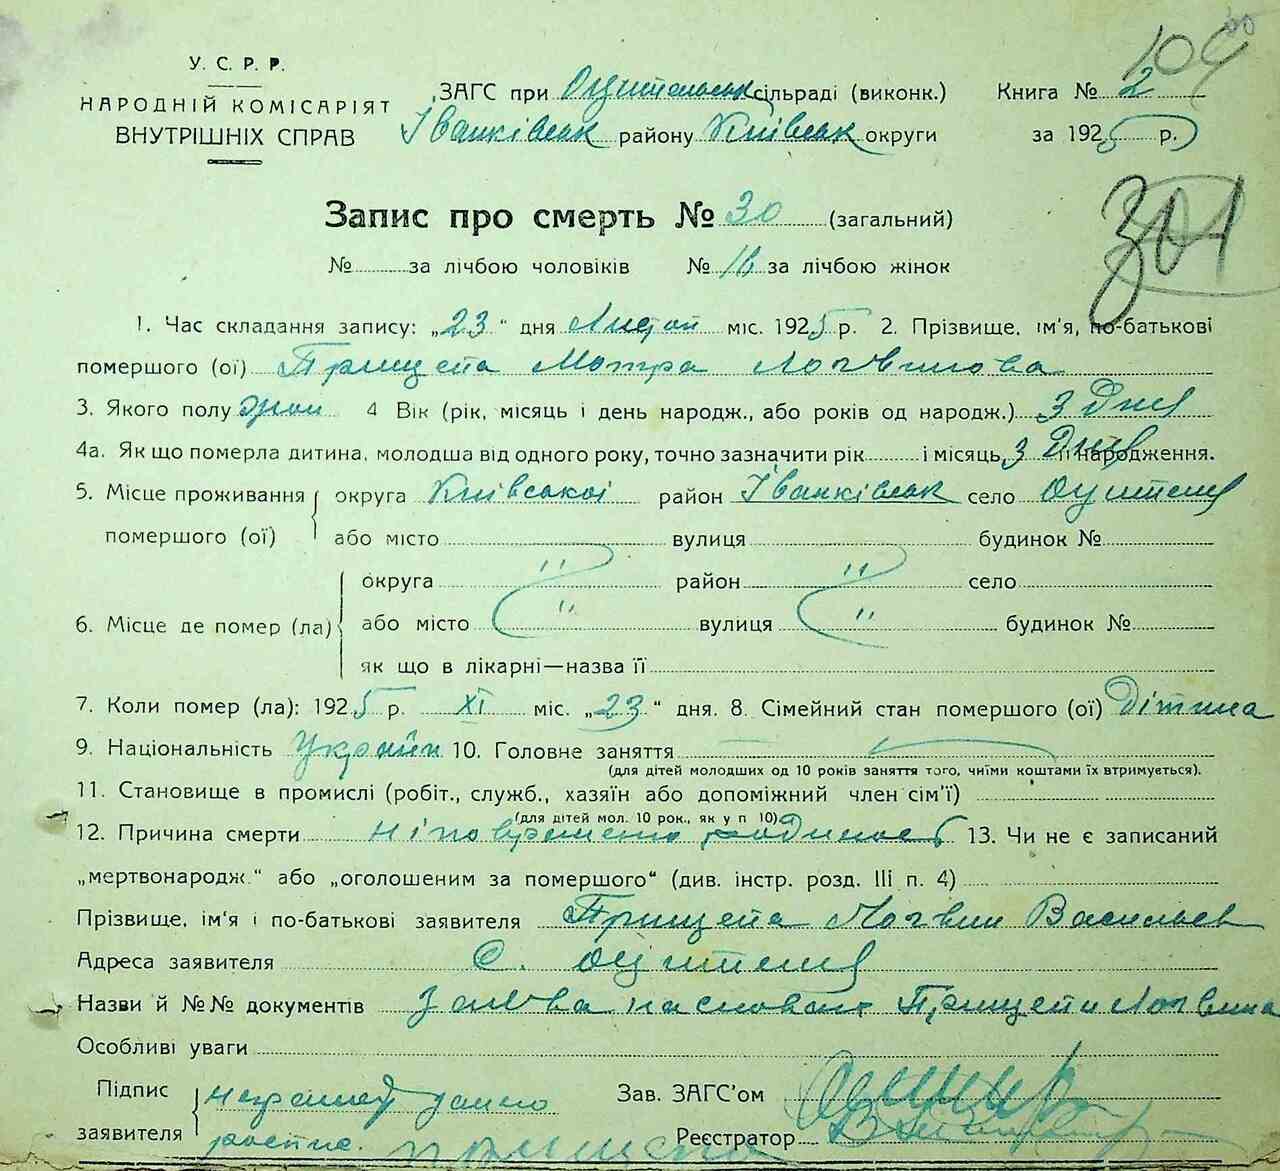 У. С. Р. Р.
НАРОДНІЙ КОМІСАРІЯТ
ВНУТРІШНІХ СПРАВ
ЗАГС при Оцительськ сільраді (виконк.)
Іванківськ району Київськ округи
Книга № 2
за 1925 р.
104
301
Запис про смерть № 30 (загальний)
№ за лічбою чоловіків № 16 за лічбою жінок
1. Час складання запису: „23" дня Листоп міс. 1925 р. 2. Прізвище, ім'я, по-батькові
помершого (ої) Прищепа Мотра Логвинова
3. Якого полу жін 4 Вік (рік, місяць і день народж., або років од народж.) 3 Дня
4а. Як що померла дитина, молодша від одного року, точно зазначити рік і місяць 3 Днів її народження.
5. Місце проживання помершого (ої) округа Київської район Іванківськ село Оцителя
або місто вулиця будинок №
6. Місце де помер (ла) округа " район " село
або місто " вулиця " будинок №
як що в лікарні—назва її
7. Коли помер (ла): 1925 р. XI міс. „23" дня. 8. Сімейний стан помершого (ої) Дітина
9. Національність Україн 10. Головне заняття
(для дітей молодших од 10 років заняття того, чиїми коштами їх втримується).
11. Становище в промислі (робіт., служб., хазяїн або допоміжний член сім'ї)
(для дітей мол. 10 рок., як у п 10)
12. Причина смерти 13. Чи не є записаний
„мертвонародж." або „оголошеним за помершого" (див. інстр. розд. III п. 4)
Прізвище, ім'я і по-батькові заявителя Прищепа Логвин Васильев
Адреса заявителя С. Оцителя
Назви й №№ документів Заява Прищепи Логвина
Особливі уваги
Підпис заявителя неграмот
Прищепа
Зав. ЗАГС'ом
Реєстратор